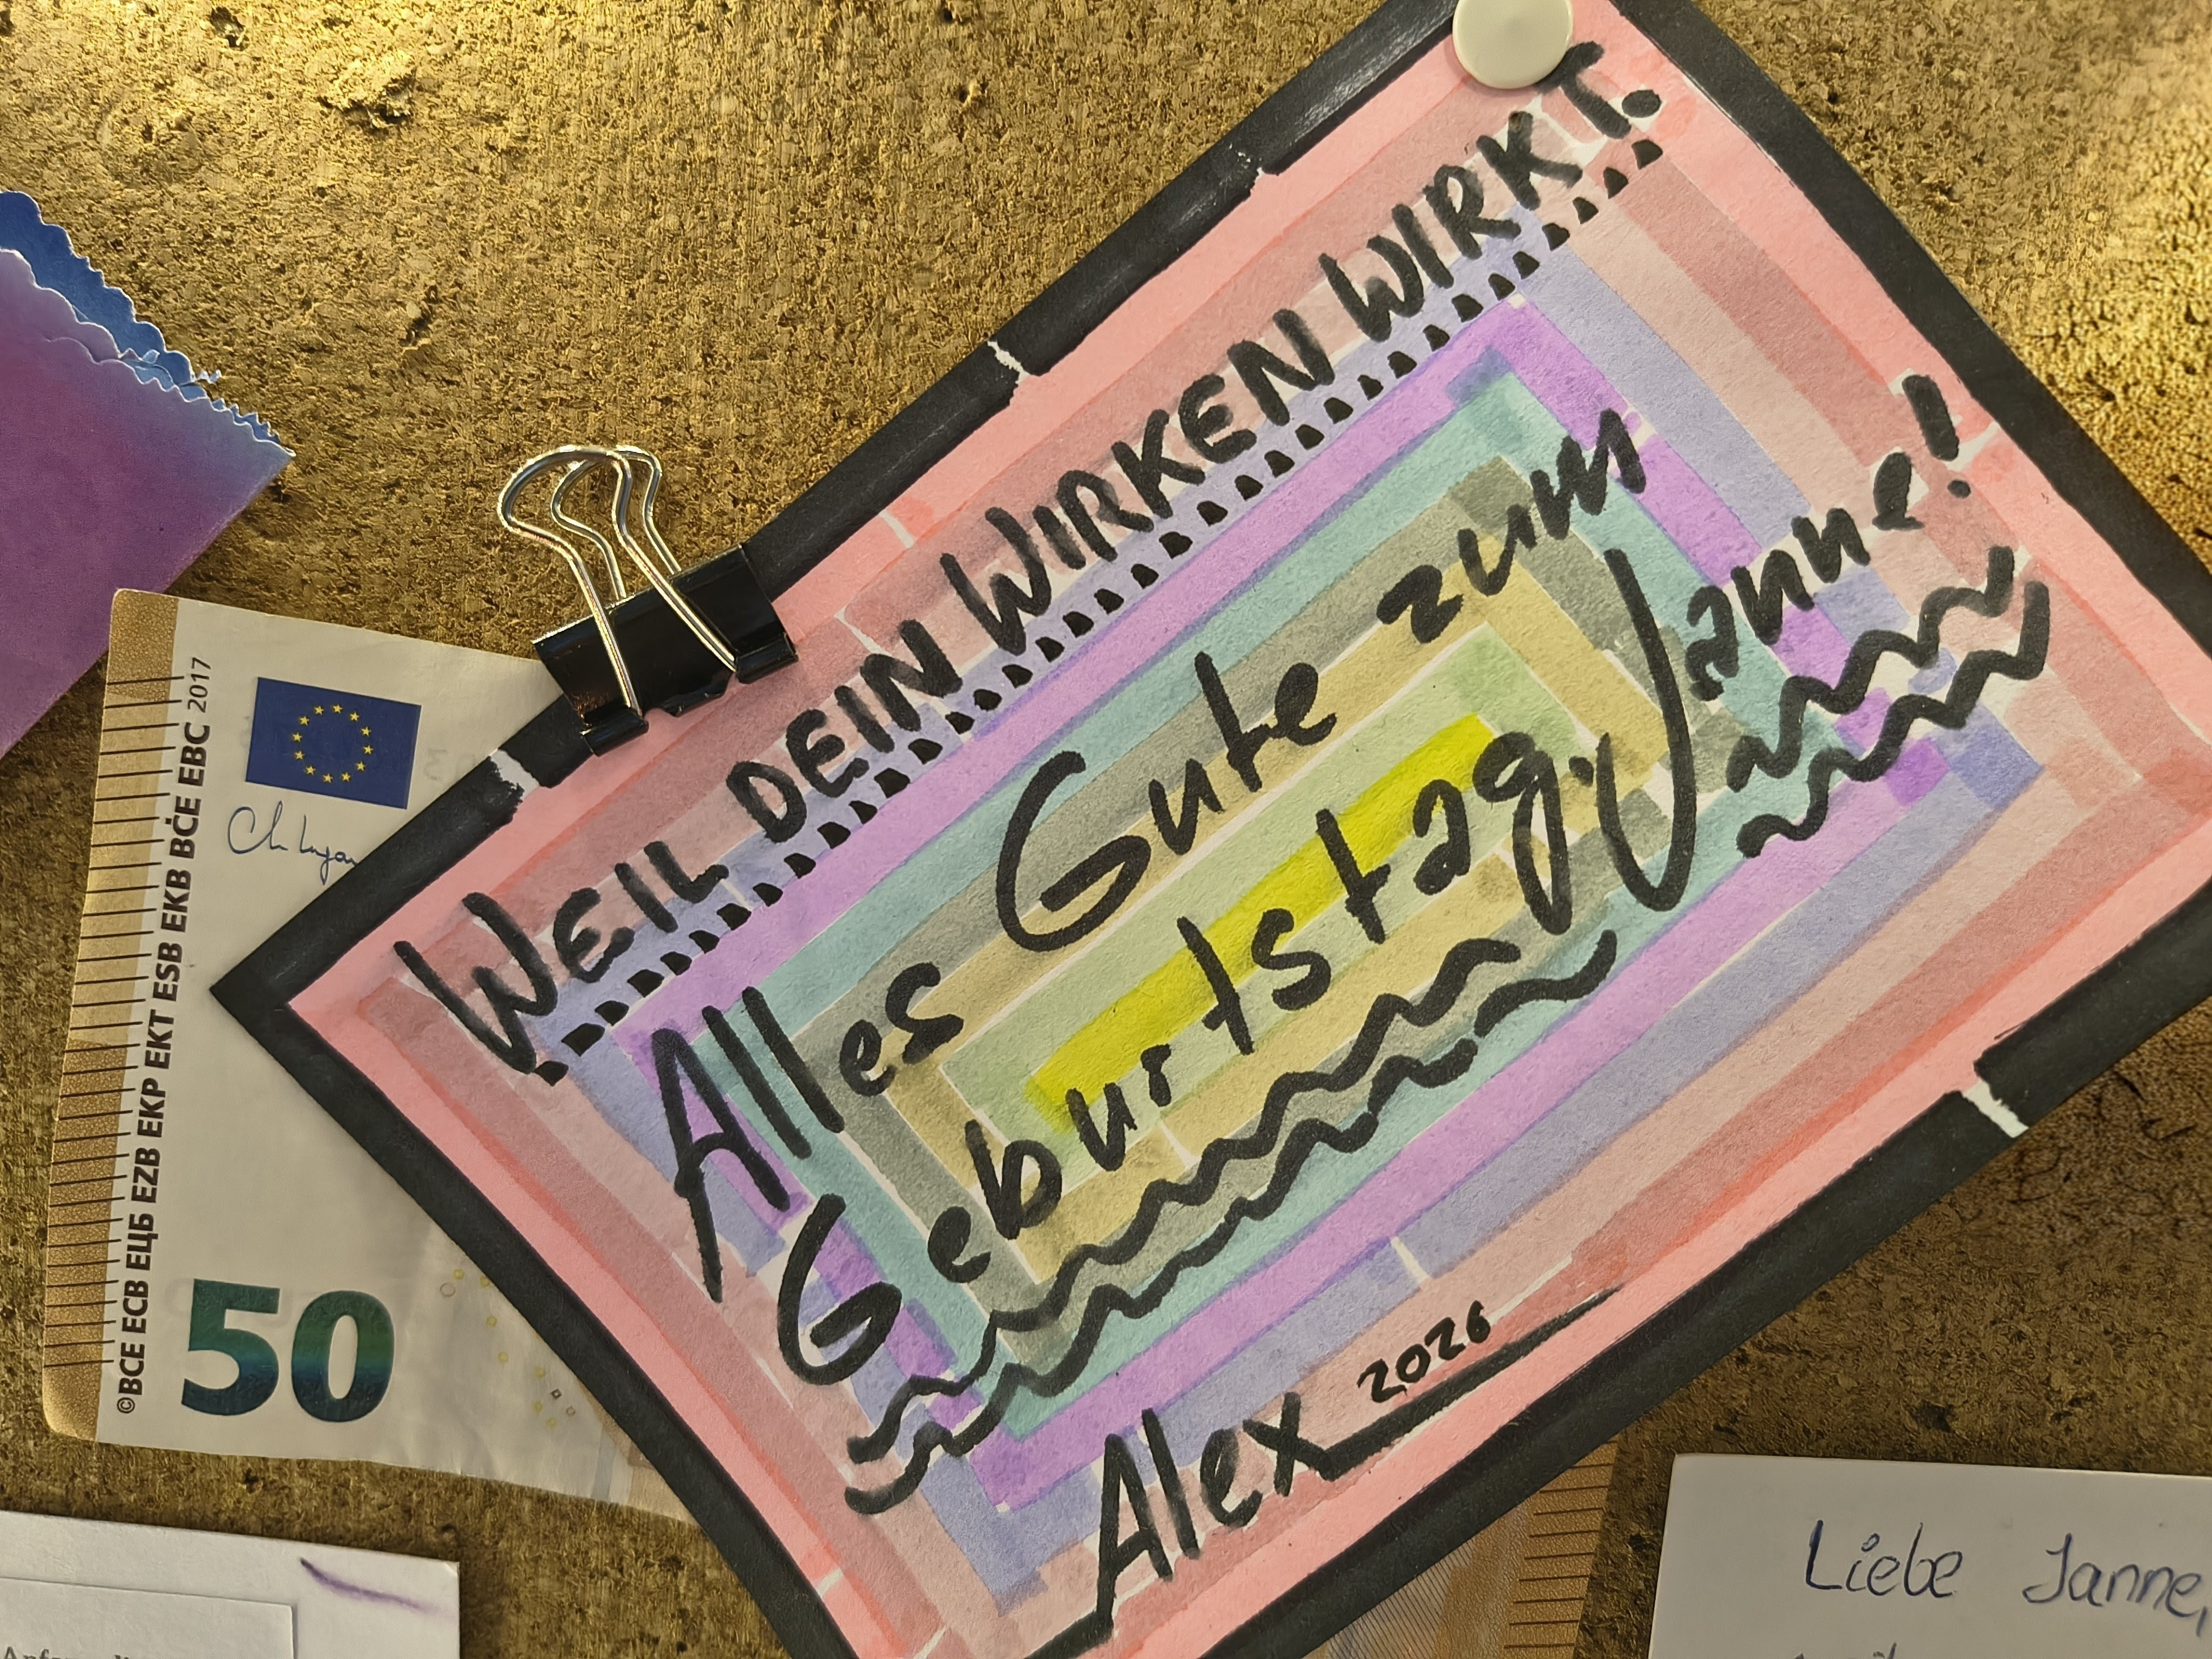 WEIL DEIN WIRKEN WIRKT.
Alles Gute zum
Geburtstag, Janne!
Alex 2026
©BCE ECB ЕЦБ EZB EKP EKT ESB EKB BĊE EBC 2017
50
Liebe Janne,